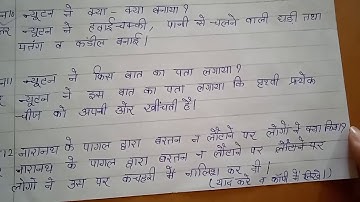 न्यूटन ने क्या - क्या बनाया?
न्यूटन ने हवाई-चक्की, पानी से चलने वाली घड़ी तथा
पतंग व कंडील बनाई।
न्यूटन ने किस बात का पता लगाया?
न्यूटन ने इस बात का पता लगाया कि पृथ्वी प्रत्येक
चीज को अपनी ओर खींचती है।
12 नारानाथ के पागल द्वारा बरतन न लौटाने पर लोगों ने क्या किया?
नारानाथ के पागल द्वारा बरतन न लौटाने पर
लोगों ने उस पर कचहरी में नालिश कर दी।
(याद करे व कॉपी में लिखे।)